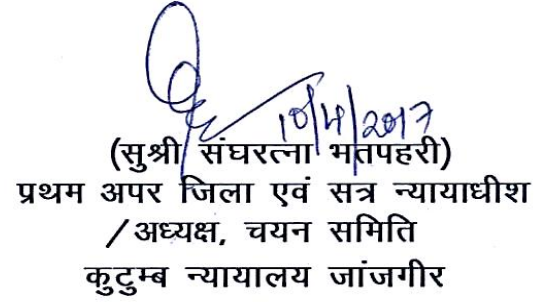 10/4/2017
(सुश्री संघरत्ना भतपहरी)
प्रथम अपर जिला एवं सत्र न्यायाधीश
/अध्यक्ष, चयन समिति
कुटुम्ब न्यायालय जांजगीर